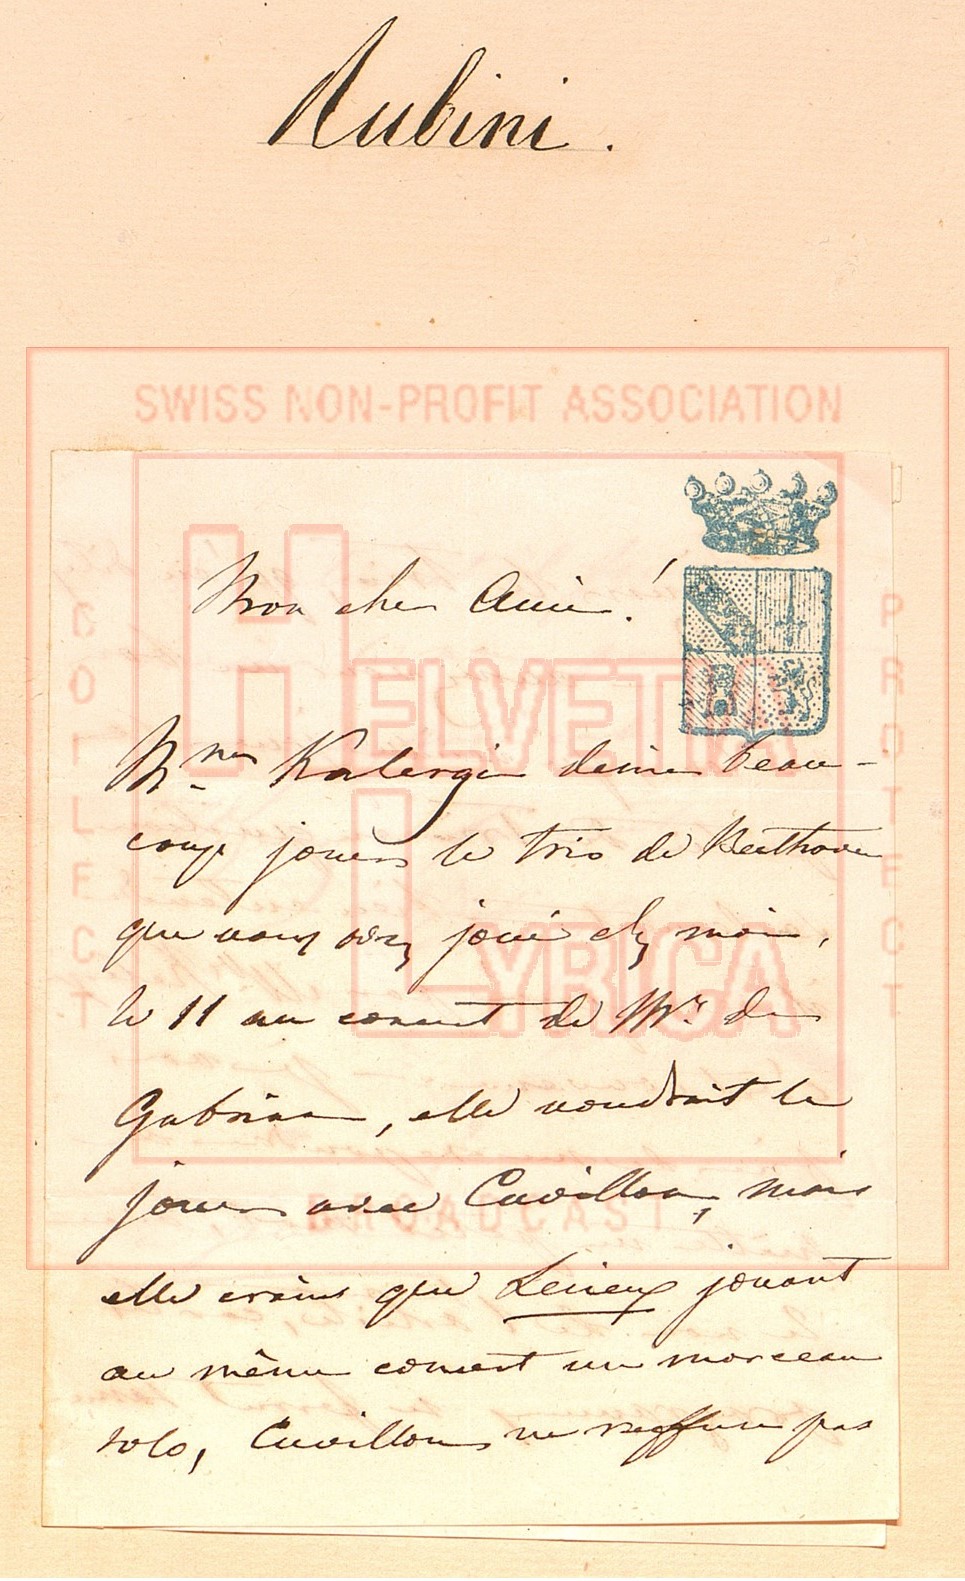 Rubini.
SWISS NON-PROFIT ASSOCIATION
Mon cher Ami!
HELVETIA
LYRICA
COLLECT
PROTECT
BROADCAST
Mme Kalergi desire beau-
coup jouer le trio de Beethoven
que vous avez joué chez moi,
le 11 au concert de Mr. de
Gabriac, elle voudrait le
jouer avec Cuvillon, mais
elle crains que Leneux jouant
au même concert un morceau
solo, Cuvillon ne reffuse pas